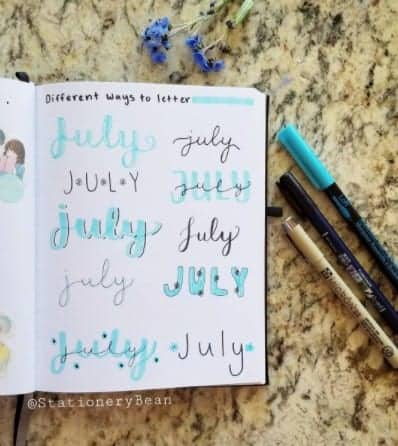 Different ways to letter
july july
J•U•L•Y JULY july
july july
july JULY
july july July
@StationeryBean